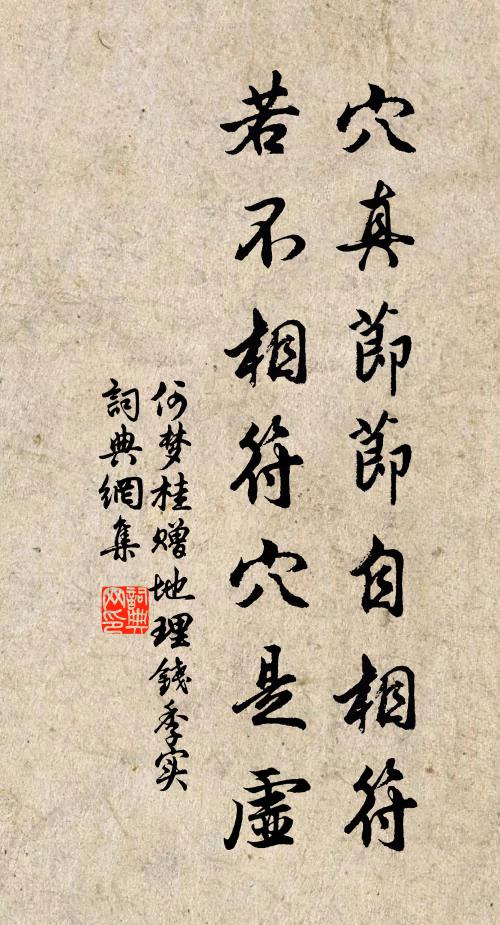 穴真節節自相符
若不相符穴是虛
何梦桂赠地理錢季实
詞典網集
詞典网印